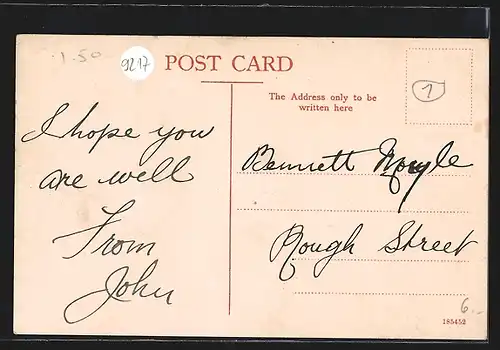 1.50
9217
POST CARD
The Address only to be
written here
1
I hope you
are well
From
John
Bennett Moyle
Rough Street
6.-
185452